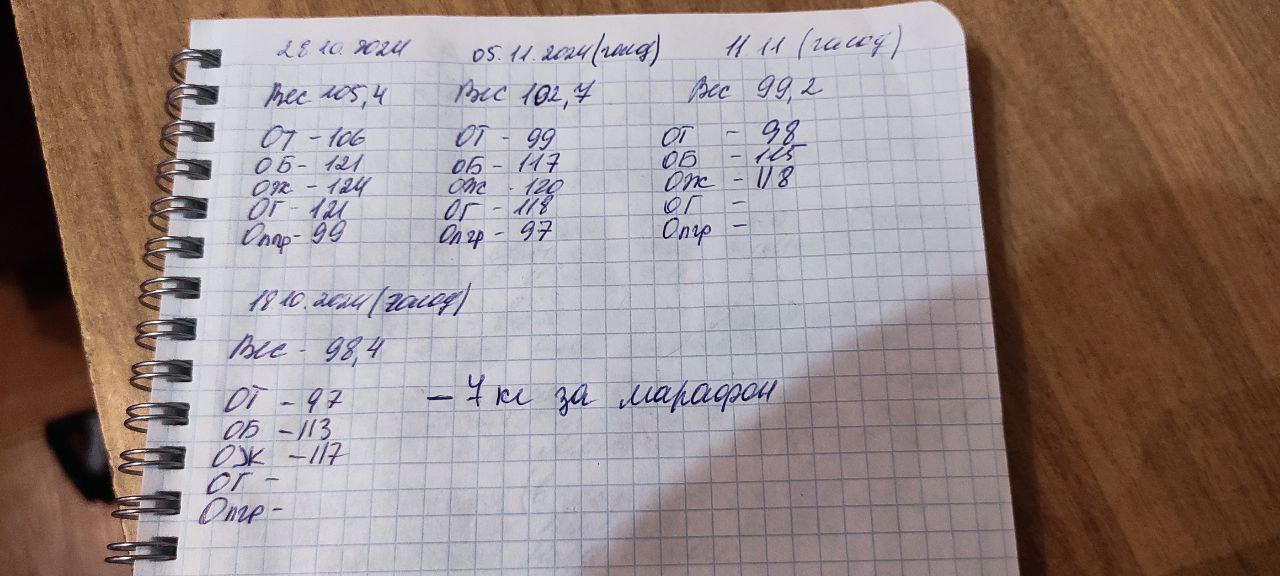 28.10.2024
Вес 105,4
ОТ - 106
ОБ - 121
ОЖ - 124
ОГ - 121
Опгр - 99
05.11.2024 (голод)
Вес 102,7
ОТ - 99
ОБ - 117
ОЖ - 120
ОГ - 118
Опгр - 97
11.11 (голод)
Вес 99,2
ОТ - 98
ОБ - 115
ОЖ - 118
ОГ -
Опгр -
18.10.2024 (голод)
Вес - 98,4
ОТ - 97
ОБ - 113
ОЖ - 117
ОГ -
Опгр -
- 7 кг за марафон